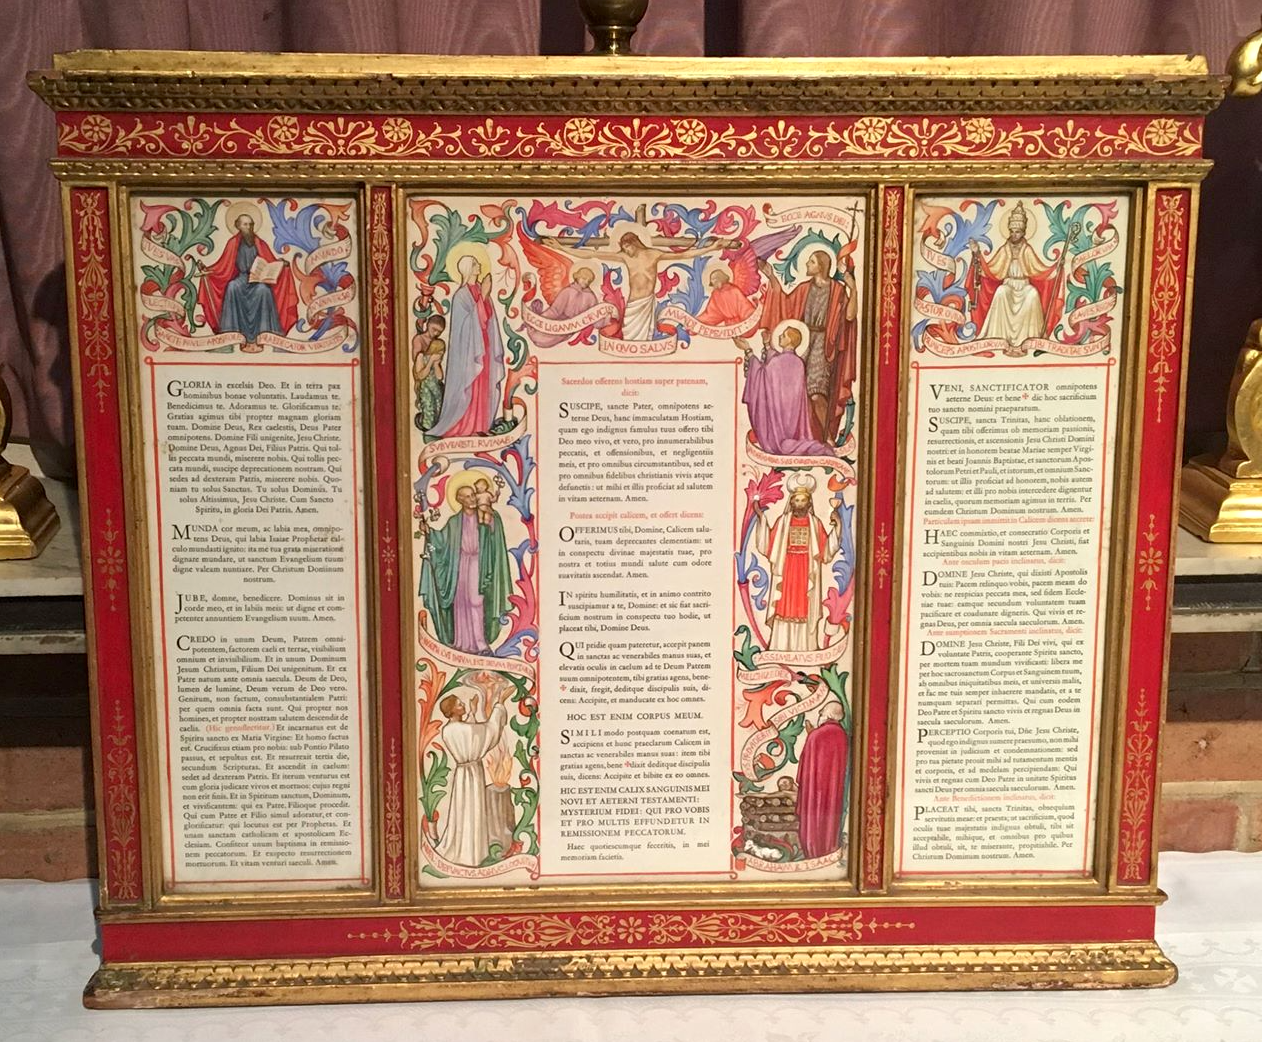 GLORIA in excelsis Deo. Et in terra pax
Benedicimus te. Adoramus te. Glorificamus te.
Gratias agimus tibi propter magnam gloriam
tuam. Domine Deus, Rex caelestis, Deus Pater
omnipotens. Domine Fili unigenite, Jesu Christe.
Domine Deus, Agnus Dei, Filius Patris. Qui tol-
lis peccata mundi, miserere nobis. Qui tollis pec-
cata mundi, suscipe deprecationem nostram. Qui
sedes ad dexteram Patris, miserere nobis. Quo-
niam tu solus Sanctus. Tu solus Dominus. Tu
solus Altissimus, Jesu Christe. Cum Sancto
Spiritu, in gloria Dei Patris. Amen.
MUNDA cor meum, ac labia mea, omnipo-
tens Deus, qui labia Isaiae Prophetae cal-
culo mundasti ignito: ita me tua grata miseratione
dignare mundare, ut sanctum Evangelium tuum
digne valeam nuntiare. Per Christum Dominum
nostrum.
JUBE, domne, benedicere. Dominus sit in
corde meo, et in labiis meis: ut digne et com-
petenter annuntiem Evangelium suum. Amen.
CREDO in unum Deum, Patrem omni-
potentem, factorem caeli et terrae, visibilium
omnium et invisibilium. Et in unum Dominum
Jesum Christum, Filium Dei unigenitum. Et ex
Patre natum ante omnia saecula. Deum de Deo,
lumen de lumine, Deum verum de Deo vero.
Genitum, non factum, consubstantialem Patri:
per quem omnia facta sunt. Qui propter nos
homines, et propter nostram salutem descendit de
caelis. (Hic genuflectitur) Et incarnatus est de
Spiritu sancto ex Maria Virgine: Et homo factus
est. Crucifixus etiam pro nobis: sub Pontio Pilato
passus, et sepultus est. Et resurrexit tertia die,
secundum Scripturas. Et ascendit in caelum:
sedet ad dexteram Patris. Et iterum venturus est
cum gloria judicare vivos et mortuos: cujus regni
non erit finis. Et in Spiritum sanctum, Dominum,
et vivificantem: qui ex Patre, Filioque procedit.
Qui cum Patre et Filio simul adoratur, et con-
glorificatur: qui locutus est per Prophetas. Et
unam sanctam catholicam et apostolicam Ec-
clesiam. Confiteor unum baptisma in remissio-
nem peccatorum. Et exspecto resurrectionem
mortuorum. Et vitam venturi saeculi. Amen.
ECCE AGNUS DEI
IN QUO SALUS
Sacerdos offerens hostiam super patenam,
dicit:
SUSCIPE, sancte Pater, omnipotens ae-
terne Deus, hanc immaculatam Hostiam,
quam ego indignus famulus tuus offero tibi
Deo meo vivo, et vero, pro innumerabilibus
peccatis, et offensionibus, et negligentiis
meis, et pro omnibus circumstantibus, sed et
pro omnibus fidelibus christianis vivis atque
defunctis: ut mihi et illis proficiat ad salutem
in vitam aeternam. Amen.
Postea accipit calicem, et offert dicens:
OFFERIMUS tibi, Domine, Calicem salu-
taris, tuam deprecantes clementiam: ut
in conspectu divinae majestatis tuae, pro
nostra et totius mundi salute cum odore
suavitatis ascendat. Amen.
IN spiritu humilitatis, et in animo contrito
suscipiamur a te, Domine: et sic fiat sacri-
ficium nostrum in conspectu tuo hodie, ut
placeat tibi, Domine Deus.
QUI pridie quam pateretur, accepit panem
in sanctas ac venerabiles manus suas, et
elevatis oculis in caelum ad te Deum Patrem
suum omnipotentem, tibi gratias agens, bene-
✠ dixit, fregit, deditque discipulis suis, di-
cens: Accipite, et manducate ex hoc omnes.
HOC EST ENIM CORPUS MEUM.
SIMILI modo postquam coenatum est,
accipiens et hunc praeclarum Calicem in
sanctas ac venerabiles manus suas: item tibi
gratias agens, bene ✠dixit deditque discipulis
suis, dicens: Accipite et bibite ex eo omnes.
HIC EST ENIM CALIX SANGUINIS MEI
NOVI ET AETERNI TESTAMENTI:
MYSTERIUM FIDEI: QUI PRO VOBIS
ET PRO MULTIS EFFUNDETUR IN
REMISSIONEM PECCATORUM.
Haec quotiescumque feceritis, in mei
memoriam facietis.
ASSIMILATUS FILIO
MELCHISEDECH
ABRAHAM & ISAAC
VENI, SANCTIFICATOR omnipotens
aeterne Deus: et bene ✠ dic hoc sacrificium
tuo sancto nomini praeparatum.
SUSCIPE, sancta Trinitas, hanc oblationem,
quam tibi offerimus ob memoriam passionis,
resurrectionis, et ascensionis Jesu Christi Domini
nostri: et in honorem beatae Mariae semper Virgi-
nis, et beati Joannis Baptistae, et sanctorum Apos-
tolorum Petri et Pauli, et istorum, et omnium Sanc-
torum: ut illis proficiat ad honorem, nobis autem
ad salutem: et illi pro nobis intercedere dignentur
in caelis, quorum memoriam agimus in terris. Per
eumdem Christum Dominum nostrum. Amen.
Particulam ipsam immittit in Calicem dicens secrete:
HAEC commixtio, et consecratio Corporis et
Sanguinis Domini nostri Jesu Christi, fiat
accipientibus nobis in vitam aeternam. Amen.
Ante osculum pacis inclinatus, dicit:
DOMINE Jesu Christe, qui dixisti Apostolis
tuis: Pacem relinquo vobis, pacem meam do
vobis: ne respicias peccata mea, sed fidem Eccle-
siae tuae: eamque secundum voluntatem tuam
pacificare et coadunare digneris. Qui vivis et re-
gnas Deus, per omnia saecula saeculorum. Amen.
Ante sumptionem Sacramenti inclinatus, dicit:
DOMINE Jesu Christe, Fili Dei vivi, qui ex
voluntate Patris, cooperante Spiritu sancto,
per mortem tuam mundum vivificasti: libera me
per hoc sacrosanctum Corpus et Sanguinem tuum,
ab omnibus iniquitatibus meis, et universis malis,
et fac me tuis semper inhaerere mandatis, et a te
numquam separari permittas. Qui cum eodem
Deo Patre et Spiritu sancto vivis et regnas Deus in
saecula saeculorum. Amen.
PERCEPTIO Corporis tui, Dñe Jesu Christe,
quod ego indignus sumere praesumo, non mihi
proveniat in judicium et condemnationem: sed
pro tua pietate prosit mihi ad tutamentum mentis
et corporis, et ad medelam percipiendam: Qui
vivis et regnas cum Deo Patre in unitate Spiritus
sancti Deus per omnia saecula saeculorum. Amen.
Ante Benedictionem inclinatus, dicit:
PLACEAT tibi, sancta Trinitas, obsequium
servitutis meae: et praesta; ut sacrificium, quod
oculis tuae majestatis indignus obtuli, tibi sit
acceptabile, mihique, et omnibus pro quibus
illud obtuli, sit, te miserante, propitiabile. Per
Christum Dominum nostrum. Amen.